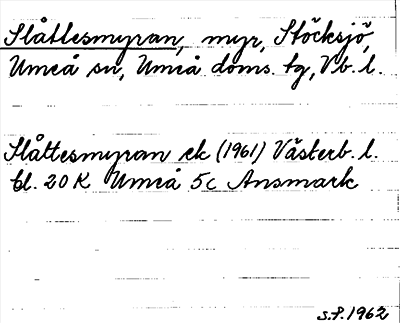 Slåttesmyran, myr, Stöcksjö,
Umeå sn, Umeå doms. tg, Vb. l.
Slåttesmyran ek (1961) Västerb. l.
bl. 20 K Umeå 5c Ansmark
S.P. 1962